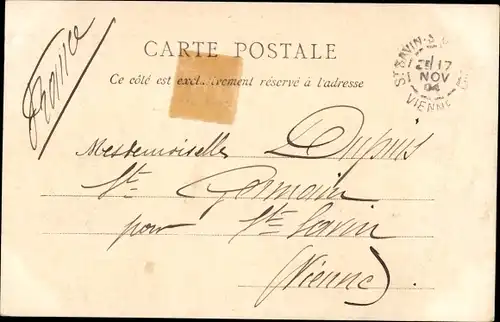 France
CARTE POSTALE
Ce côté est exclusivement réservé à l'adresse
ST SAVIN
17
NOV
04
VIENNE
Mesdemoiselles Dupuis
St Germain
pour St Savin
(Vienne)